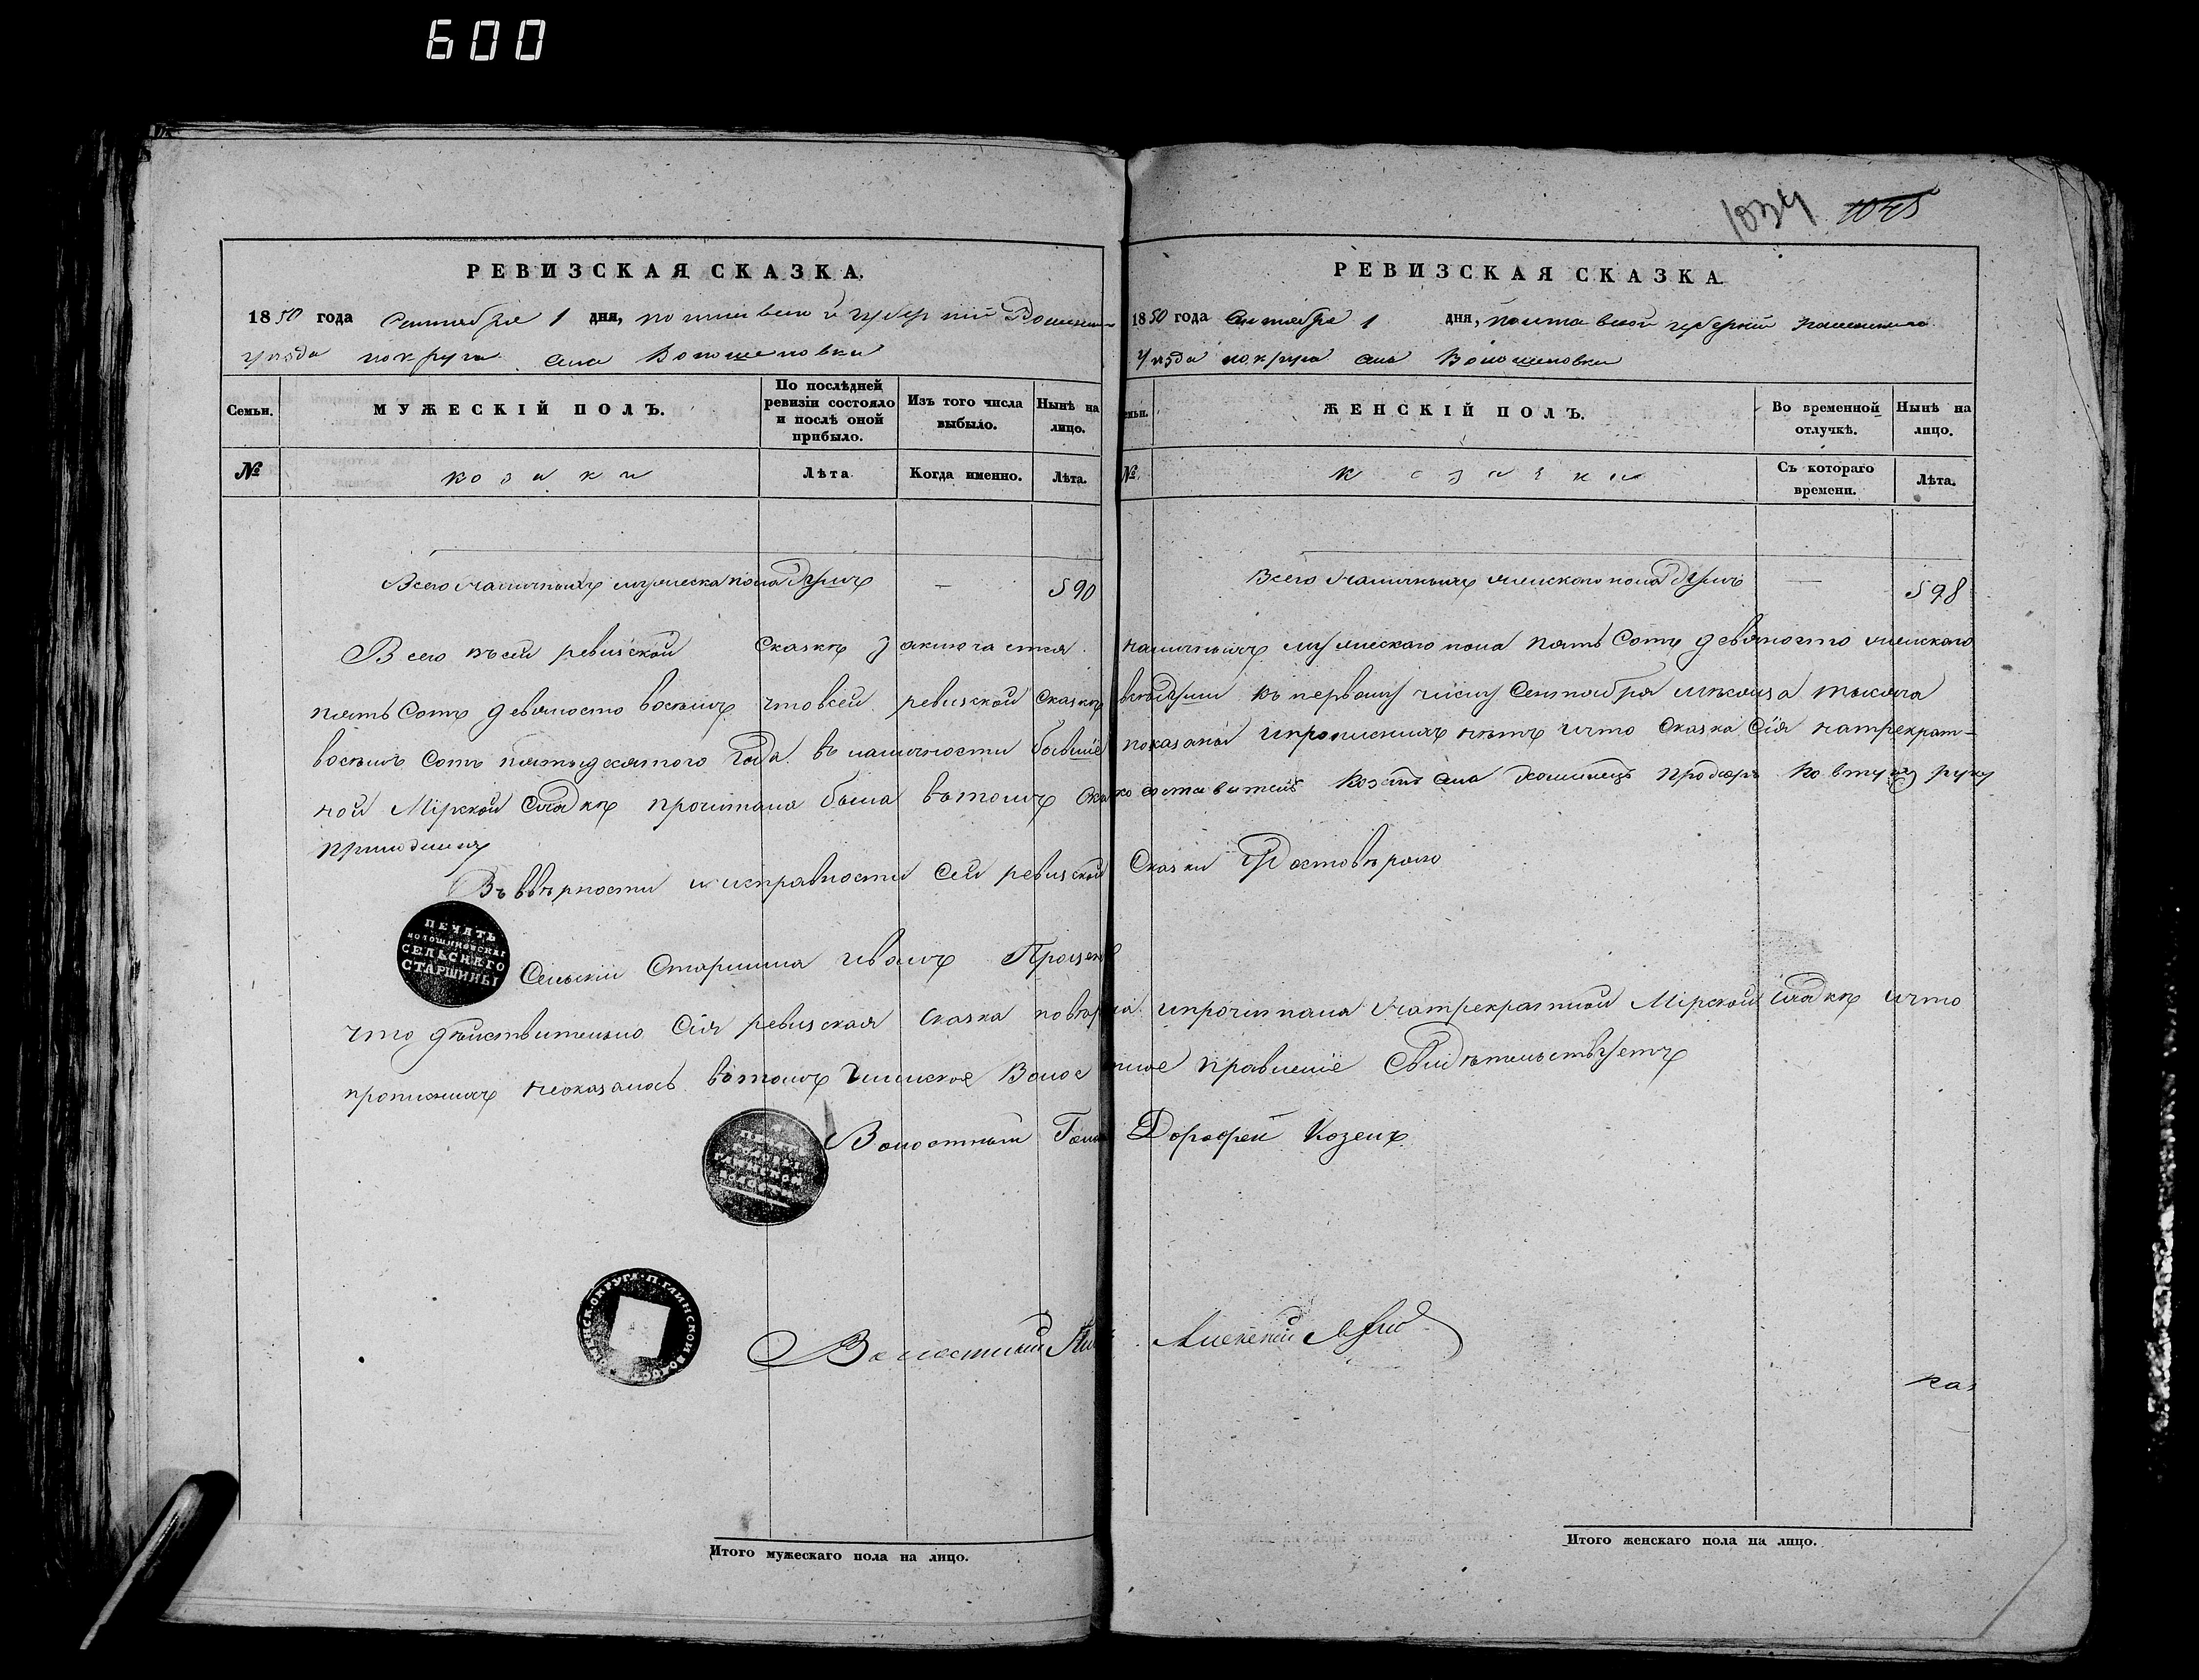 600
1034 1045
РЕВИЗСКАЯ СКАЗКА.
1850 года Сентября 1 дня, полтавской губерніи Роменского
уѣзда округа села Волошиновки
Семьи.
МУЖЕСКІЙ ПОЛЪ.
По послѣдней ревизіи состояло и послѣ оной прибыло.
Изъ того числа выбыло.
Нынѣ на лицо.
№
козаки
Лѣта
Когда именно.
Лѣта.
РЕВИЗСКАЯ СКАЗКА
1850 года Сентября 1 дня, полтавской губерніи роменского
уѣзда округа села Волошиновки
ЖЕНСКІЙ ПОЛЪ.
Во временной отлучкѣ.
Нынѣ на лицо.
№
козачки
Съ котораго времени.
Лѣта.
Всего наличныхъ мужеска пола душъ — 590
Всего наличныхъ женскаго пола душъ — 598
Всего въ сей ревизской сказкѣ заключается наличныхъ мужескаго пола пять сотъ девяносто женскаго
пять сотъ девяносто восемь что в сей ревизской сказкѣ всѣ души къ первому числу Сентября мѣсяца тысяча
восемь сотъ пятьдесятого года въ наличности бывшіе показаны и прописныхъ нѣтъ и что сказка сія на трекрат-
ной Мірской сходкѣ прочитана была въ томъ руку
Въ вѣрности и исправности сей ревизской Сказки Удостовѣряю
ПЕЧАТЬ ВОЛОШИНОВСКАГ СЕЛЬСКАГО СТАРШИНЫ
Сельскій Старшина Иванъ
что дѣйствительно Сія ревизская сказка повѣрена и прочитана на трекратной Мірской сходкѣ и что
прописныхъ неоказалось въ томъ Глинское Волостное правленіе Свидѣтельствуетъ
Волостный Голова Дорофей Козелъ
ОКРУГА. П. ГЛИНСКОЙ ВОЛОС
Волостный Алексей
Итого мужескаго пола на лицо.
Итого женскаго пола на лицо.